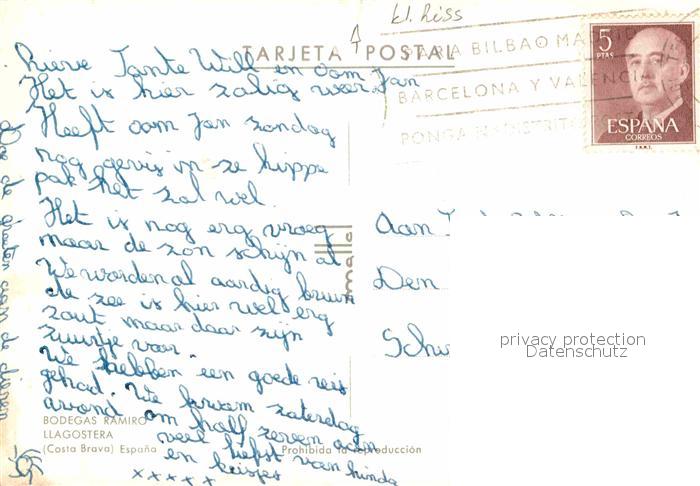 kl. kiss
TARJETA POSTAL
PARA BILBAO MA
BARCELONA Y VALENCIA
PONGA Nº DISTRITO
5
PTAS
ESPAÑA
CORREOS
F.N.M.T.
Lieve Tante Will en oom Jan
Het is hier zalig weer.
Heeft oom Jan zondag
nog gevist in ze hippe
pak het zal wel.
Het is nog erg vroeg
maar de zon schijn al
We worden al aardig bruin
de zee is hier wel erg
zout maar daar zijn
zuurtje voor.
We hebben een goede reis
gehad. We kwam zaterdag
avond om half zeven aan
veel liefst van
en kusjes
xxxxx
Doe de groeten van de dieren
Aan
Den
Sch
mallol
BODEGAS RAMIRO
LLAGOSTERA
(Costa Brava) España
Prohibida la reproducción
privacy protection
Datenschutz